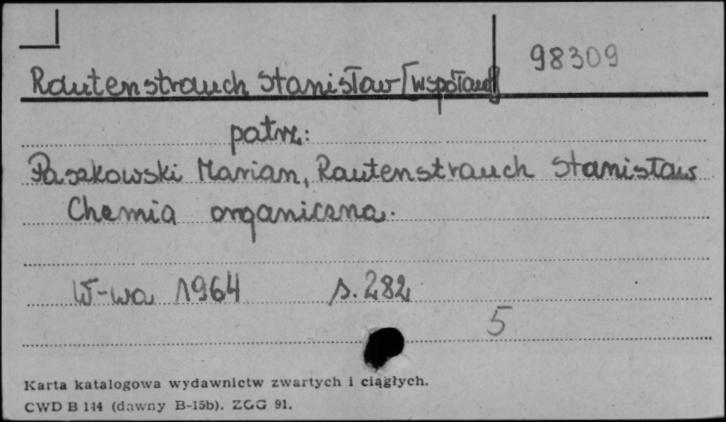 98309
Rautenstrauch Stanisław [współaut]
patrz:
Paszkowski Marian, Rautenstrauch Stanisław
Chemia organiczna.
W-wa 1964 s. 282
5
Karta katalogowa wydawnictw zwartych i ciągłych.
CWD B 144 (dawny B-15b). ZGG 91.